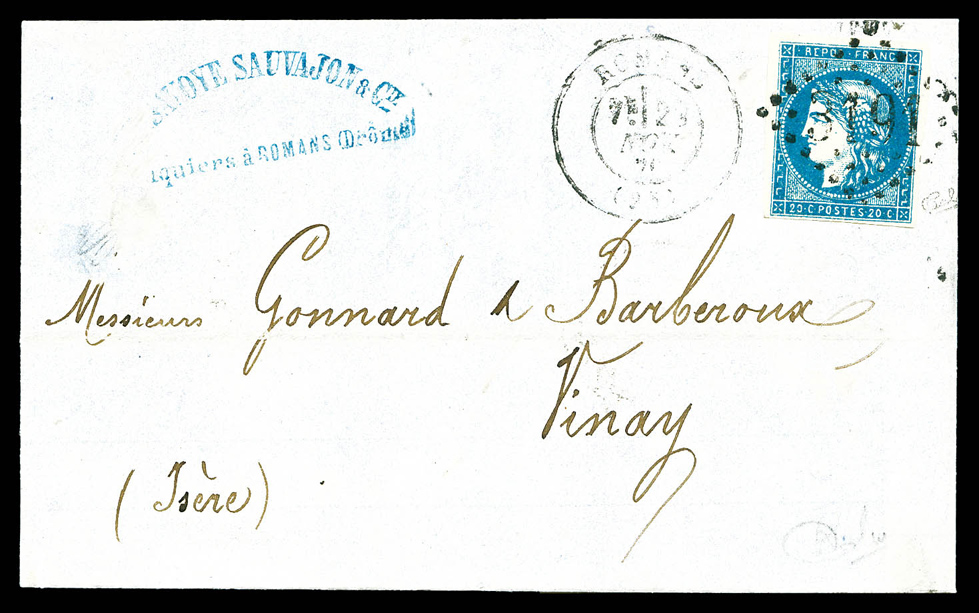 SAVOYE SAUVAJON & Cie
quiers à ROMANS (Drôme)
ROMANS
7E 29
NOV.
71
REPUB. FRANC.
3191
20·C POSTES·20·C
Messieurs Gonnard & Barberoux
Vinay
(Isère)